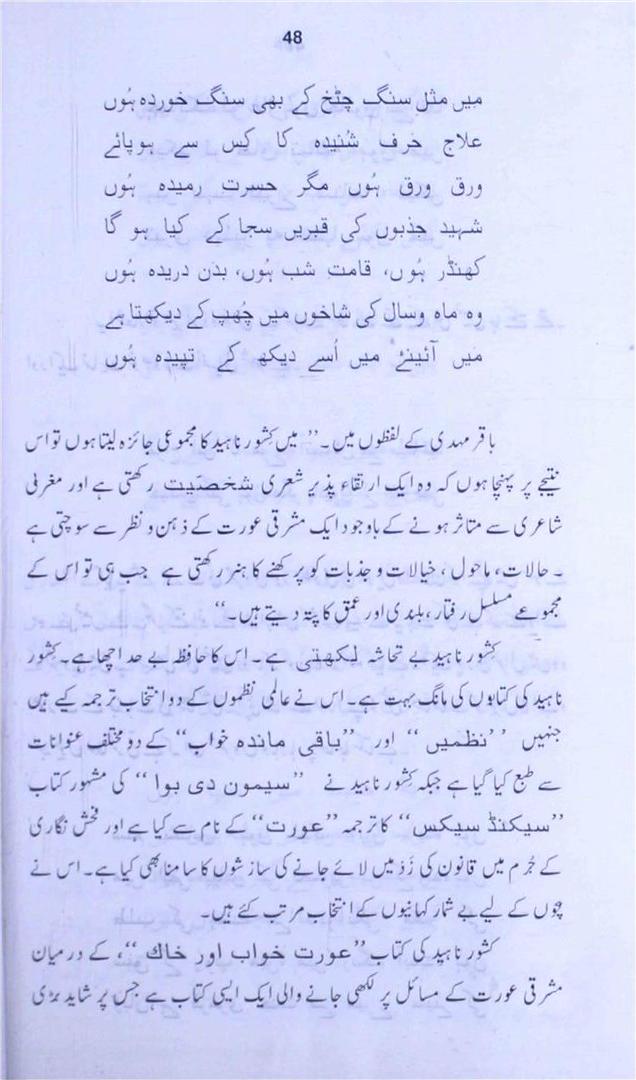 48
میں مثل سنگ چٹخ کے بھی سنگ خوردہ ہُوں
علاج حرف شُنیدہ کا کِس سے ہوپائے
ورق ورق ہُوں مگر حسرت رمیدہ ہُوں
شہید جذبوں کی قبریں سجا کے کیا ہو گا
کھنڈر ہُوں، قامت شب ہُوں، بدن دریدہ ہُوں
وہ ماہ وسال کی شاخوں میں چُھپ کے دیکھتا ہے
میں آئینے میں اُسے دیکھ کے تپیدہ ہُوں
باقر مہدی کے لفظوں میں۔’’ میں کِشور ناہید کا مجموعی جائزہ لیتا ہوں تو اس
نتیجے پر پہنچا ہوں کہ وہ ایک ارتقاء پذیر شعری شخصیّت رکھتی ہے اور مغربی
شاعری سے متاثر ہونے کے باوجود ایک مشرقی عورت کے ذہن و نظر سے سوچتی ہے
۔ حالات، ماحول، خیالات و جذبات کو پرکھنے کا ہنر رکھتی ہے جب ہی تو اس کے
مجموعے مسلسل رفتار، بلندی اور عمق کا پتہ دیتے ہیں۔‘‘
کشور ناہید بے تحاشہ لکھتی ہے۔ اس کا حافظہ بے حد اچھا ہے۔ کشور
ناہید کی کتابوں کی مانگ بہت ہے۔ اس نے عالمی نظموں کے دو انتخاب ترجمہ کیے ہیں
جنہیں ’’نظمیں‘‘ اور ’’باقی ماندہ خواب‘‘ کے دو مختلف عنوانات
سے طبع کیا گیا ہے جبکہ کِشور ناہید نے ’’سیمون دی بوا‘‘ کی مشہور کتاب
’’سیکنڈ سیکس‘‘ کا ترجمہ ’’عورت‘‘ کے نام سے کیا ہے اور فحش نگاری
کے جُرم میں قانون کی زَد میں لائے جانے کی سازشوں کا سامنا بھی کیا ہے۔ اس نے
چوں کے لیے بے شمار کہانیوں کے انتخاب مرتب کئے ہیں۔
کشور ناہید کی کتاب ’’عورت خواب اور خاك‘‘، کے درمیان
مشرقی عورت کے مسائل پر لکھی جانے والی ایک ایسی کتاب ہے جس پر شاید بڑی